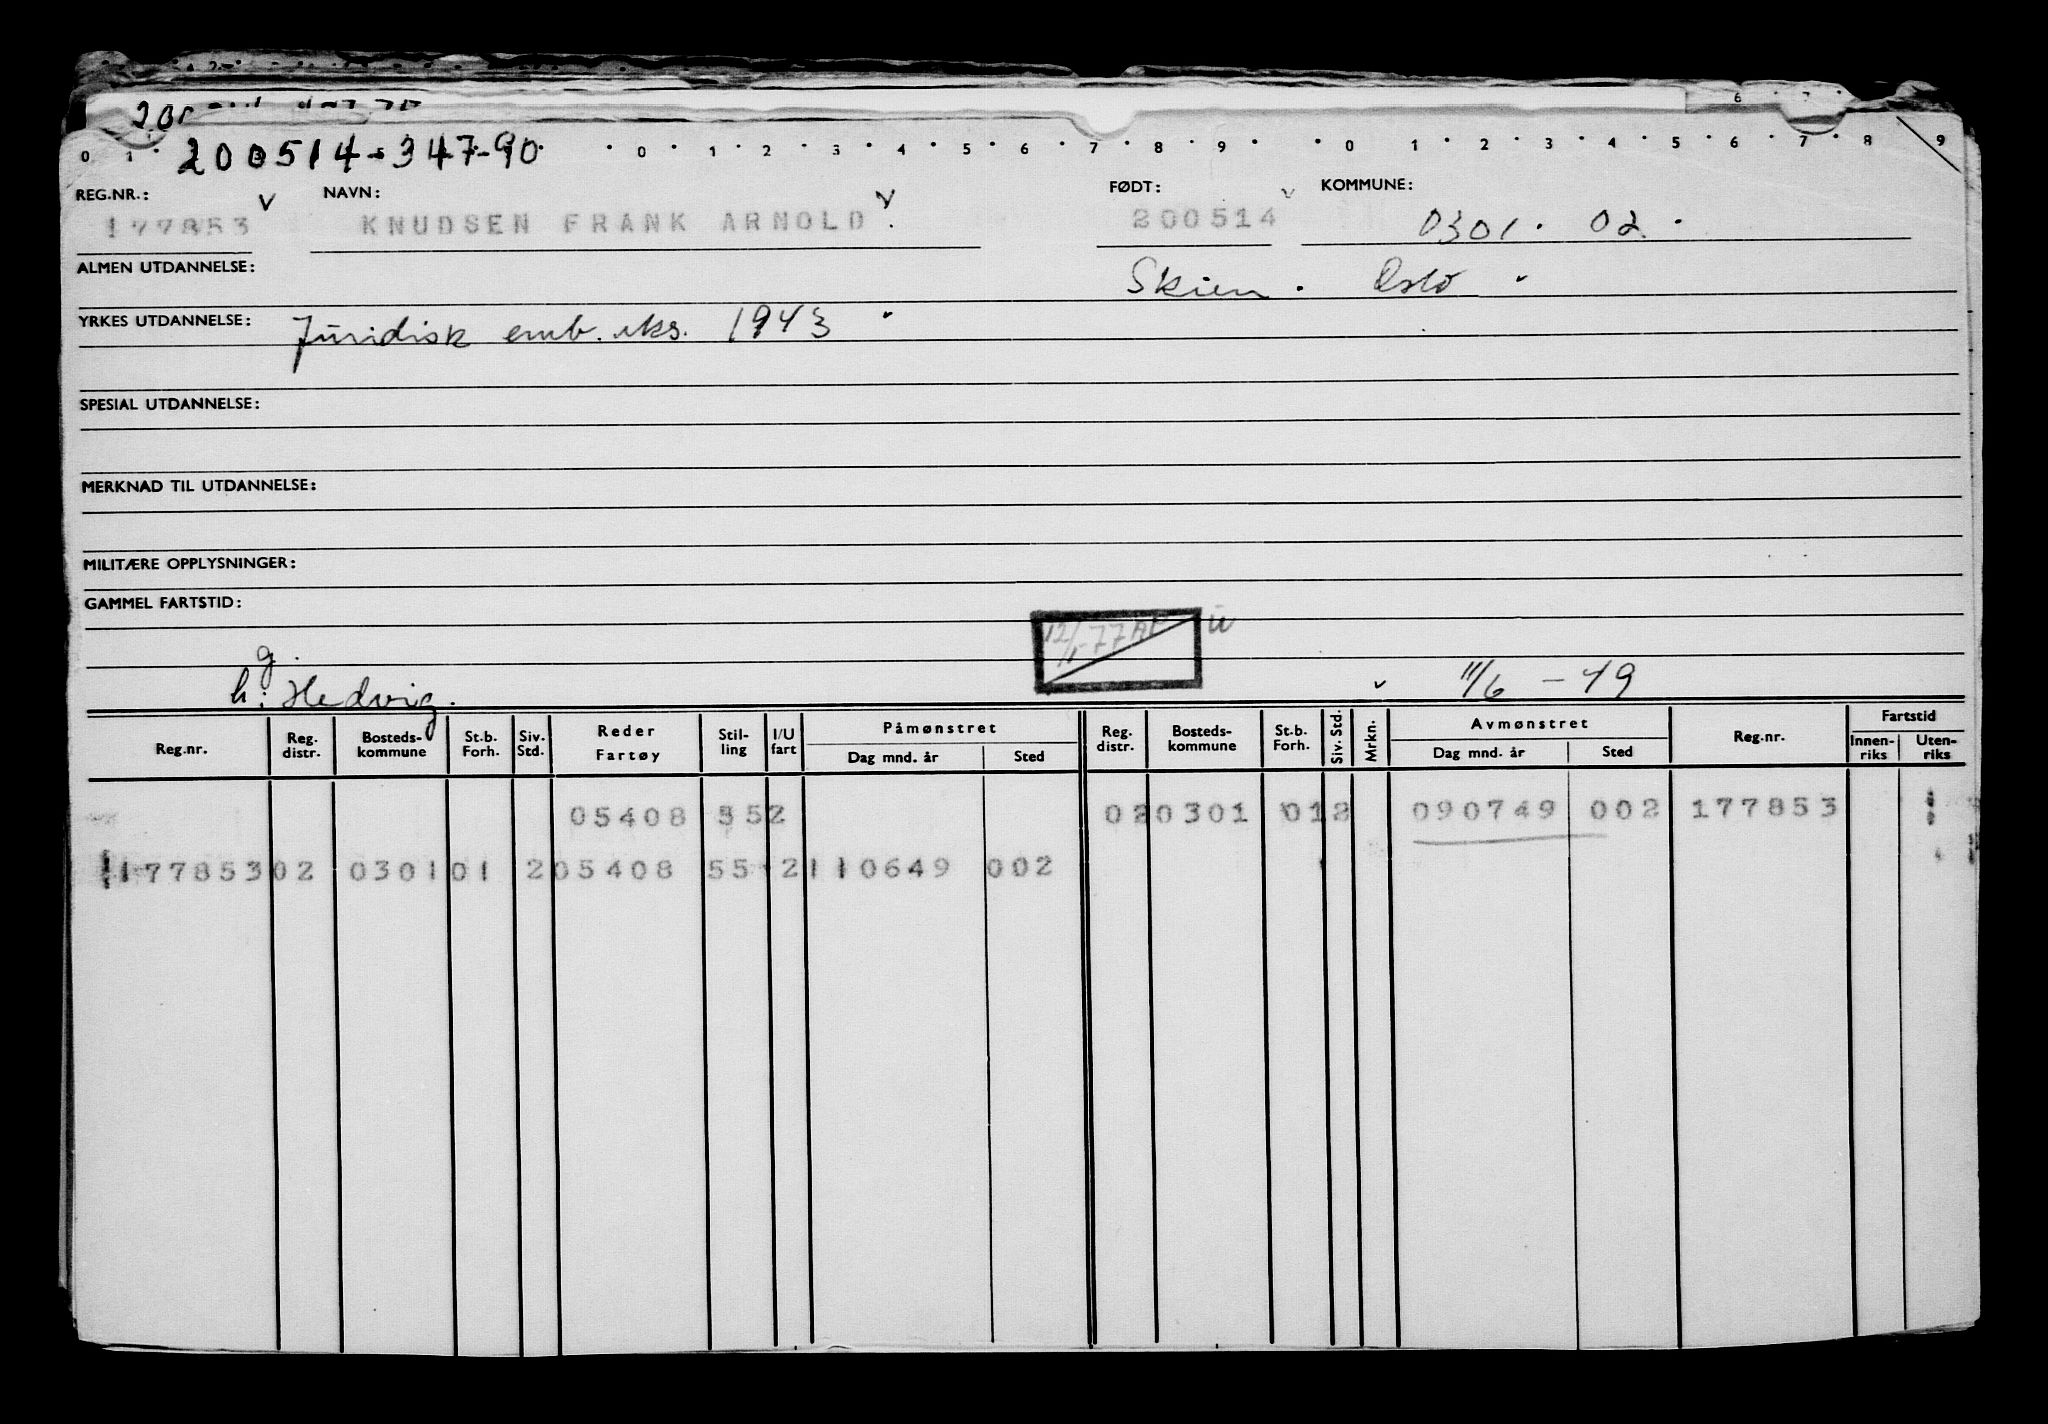 200514-347-90
0 1 0 1 2 3 4 5 6 7 8 9 0 1 2 3 4 5 6 7 8 9
REG.NR.: NAVN: FØDT: KOMMUNE:
177853 KNUDSEN FRANK ARNOLD 200514 0301. 02.
ALMEN UTDANNELSE: Skien. Oslo
YRKES UTDANNELSE: Juridisk emb. eks. 1943
SPESIAL UTDANNELSE:
MERKNAD TIL UTDANNELSE:
MILITÆRE OPPLYSNINGER:
GAMMEL FARTSTID:
g.
h: Hedvig. 11/6 - 49
Reg.nr. Reg. distr. Bosteds-kommune St.b. Forh. Siv. Std. Reder Fartøy Stil-ling I/U fart Påmønstret Dag mnd. år Sted Reg. distr. Bosteds-kommune St.b. Forh. Siv. Std. Mrkn. Avmønstret Dag mnd. år Sted Reg.nr. Fartstid Innen-riks Uten-riks
05408 552 02 0301 01 2 090749 002 177853
177853 02 0301 01 2 05408 55 2 110649 002